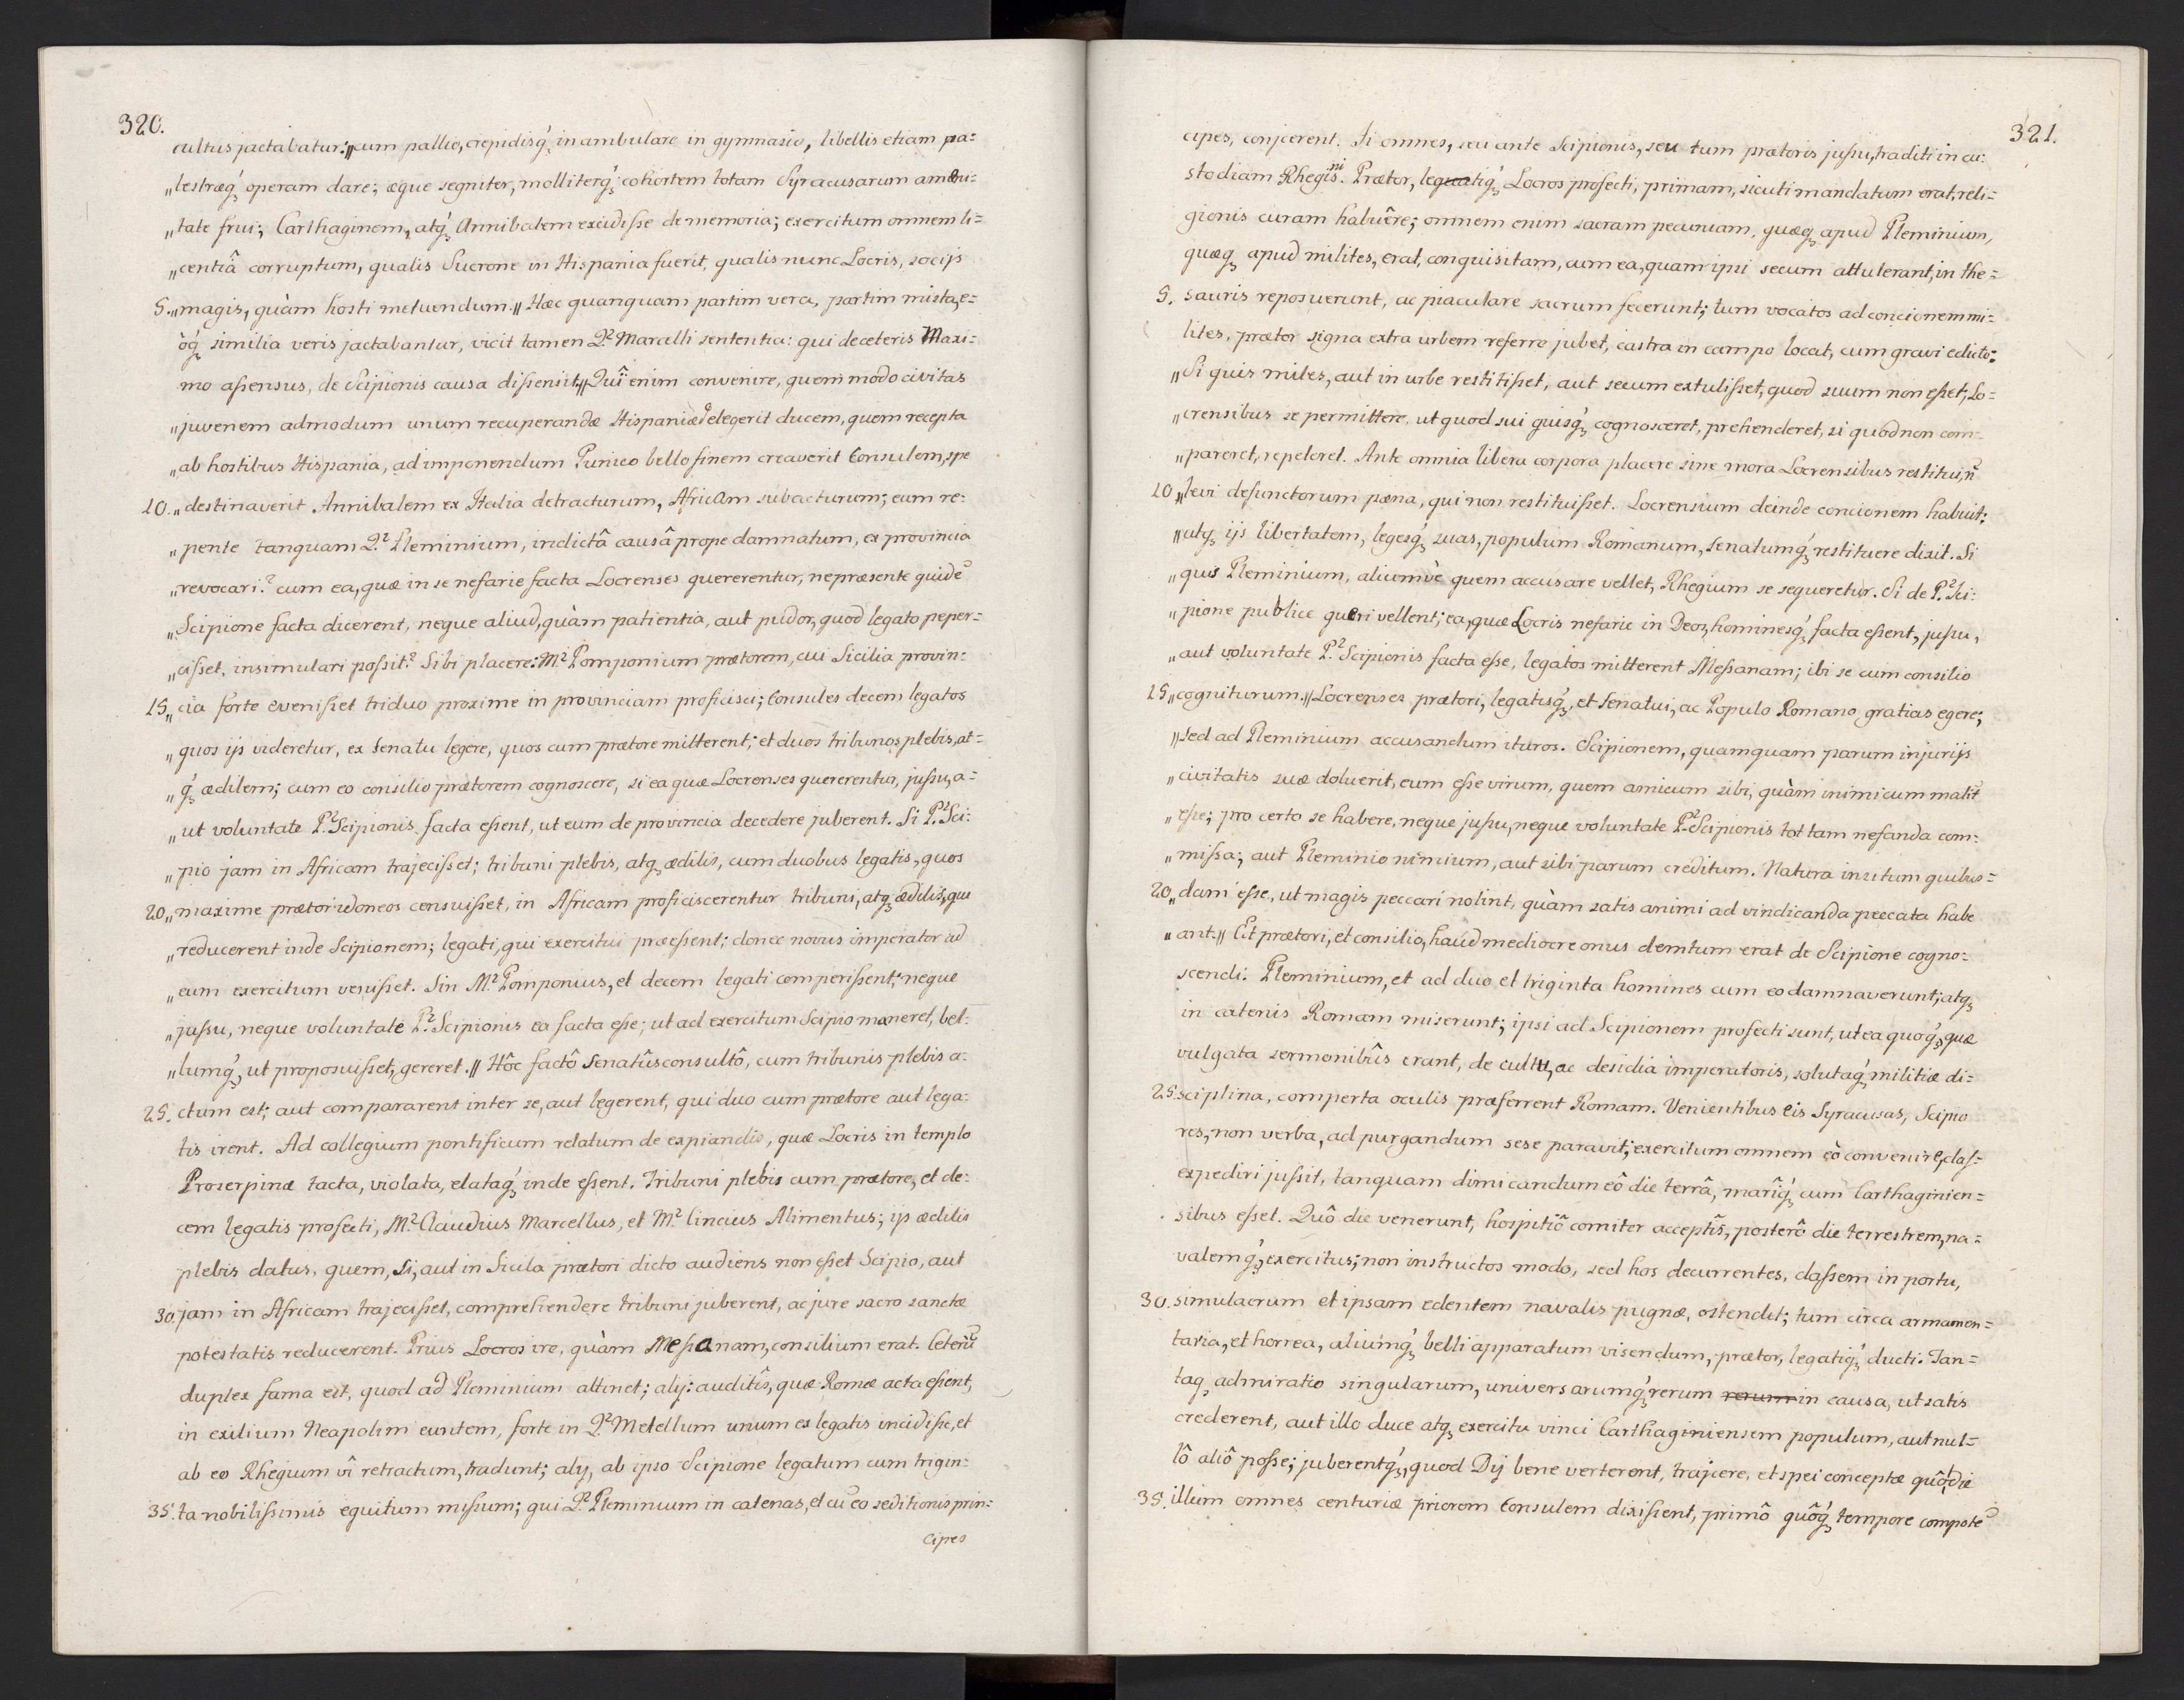 320.
cultus jactabatur:„cum pallio, crepidisq́ꝫ inambulare in gymnasio, libellis etiam pa=
„lestræq́ꝫ operam dare; æque segniter, molliterq́ꝫ cohortem totam Syracusarum amœni=
„tate frui; Carthaginem, atq́ꝫ Annibalem excidisse de memoria; exercitum omnem li=
„centiâ corruptum, qualis Sucrone in Hispania fuerit, qualis nunc Locris, socijs
5. „magis, quàm hosti metuendum.„ Hæc quanquam partim vera, partim mista, e=
òq́ꝫ similia veris jactabantur, vicit tamen Q.² Marcelli sententia: qui de ceteris Maxi=
mo assensus, de Scipionis causa dissensit.„ Quî enim convenire, quem modo civitas
„juvenem admodum unum recuperandæ Hispaniæ delegerit ducem, quem recepta
„ab hostibus Hispania, ad imponendum Punico bello finem creaverit Consulem, spe
10. „destinaverit Annibalem ex Italia detracturum, Africam subacturum; eum re=
„pente tanquam Q.² Pleminium, indictâ causâ prope damnatum, ex provincia
„revocari? cum ea, quæ in se nefarie facta Locrenses quererentur, ne præsente quidē
„Scipione facta dicerent, neque aliud, quàm patientia, aut pudor, quod legato peper=
„cisset, insimulari possit? Sibi placere: M.² Pomponium prætorem, cui Sicilia provin=
15. „cia sorte evenisset triduo proxime in provinciam proficisci; Consules decem legatos
„quos ijs videretur, ex Senatu legere, quos cum prætore mitterent; et duos tribunos plebis, at=
„q́ꝫ ædilem; cum eo consilio prætorem cognoscere, si ea quæ Locrenses quererentur, jussu, a=
„ut voluntate P.² Scipionis facta essent, ut eum de provincia decedere juberent. Si P.² Sci=
„pio jam in Africam trajecisset; tribuni plebis, atqꝫ ædilis, cum duobus legatis, quos
20. „maxime prætor idoneos censuisset, in Africam proficiscerentur tribuni, atqꝫ ædilis, qui
„reducerent inde Scipionem; legati, qui exercitui præessent; donec novus imperator ad
„eum exercitum venisset. Sin M.² Pomponius, et decem legati comperissent, neque
„jussu, neque voluntate P.² Scipionis ea facta esse; ut ad exercitum Scipio maneret, bel=
„lumq́ꝫ, ut proposuisset, gereret.„ Hôc factô Senatûsconsultô, cum tribunis plebis a=
25. ctum est; aut compararent inter se, aut legerent, qui duo cum prætore aut lega=
tis irent. Ad collegium pontificum relatum de expiandis, quæ Locris in templo
Proserpinæ tacta, violata, elataq́ꝫ inde essent. Tribuni plebis cum prætore, et de=
cem legatis profecti, M.² Claudius Marcellus, et M.² Cincius Alimentus; ijs ædilis
plebis datus, quem, si, aut in Sicila prætori dicto audiens non esset Scipio, aut
30. jam in Africam trajecisset, comprehendere tribuni juberent, ac jure sacro sanctæ
potestatis reducerent. Prius Locros ire, quàm Messanam, consilium erat. Ceterū
duplex fama est, quod ad Pleminium attinet; alij: auditîs, quæ Romæ acta essent,
in exilium Neapolim euntem, forte in Q.² Metellum unum ex legatis incidisse, et
ab eo Rhegium vî retractum, tradunt; alij, ab ipso Scipione legatum cum trigin=
35. ta nobilissimis equitum missum; qui Q.² Pleminium in catenas, et cū eo seditionis prin=
cipes
321.
cipes, conjcerent. Ii omnes, seu ante Scipionis, seu tum prætoris jussu, traditi in cu=
stodiam Rheginis. Prætor, legatiq́ꝫ Locros profecti, primam, sicuti mandatum erat, reli=
gionis curam habuêre; omnem enim sacram pecuniam, quæqꝫ apud Pleminium,
quæqꝫ apud milites, erat, conquisitam, cum ea, quam ipsi secum attulerant, in the=
5. sauris reposuerunt, ac piaculare sacrum fecerunt; tum vocatos ad concionem mi=
lites, prætor signa extra urbem referre jubet, castra in campo locat, cum gravi edicto:
„Si quis miles, aut in urbe restitisset, aut secum extulisset, quod suum non esset, Lo=
„crensibus se permittere, ut quod sui quisq́ꝫ cognosceret, prehenderet, si quod non com=
„pareret, repeteret. Ante omnia libera corpora placere sine mora Locrensibus restitui, ñ
10 „levi defunctorum pœna, qui non restituisset. Locrensium deinde concionem habuit:
„atqꝫ ijs libertatem, legesq́ꝫ suas, populum Romanum, Senatumq́ꝫ restituere dixit. Si
„quis Pleminium, aliumvè quem accusare vellet, Rhegium se sequeretur. Si de P.² Sci=
„pione publice queri vellent; ea, quæ Locris nefarie in Deos, hominesq́ꝫ facta essent, jussu,
„aut voluntate P.² Scipionis facta esse, legatos mitterent Messanam; ibi se cum consilio
15 „cogniturum.„ Locrenses prætori, legatisq́ꝫ, et Senatui, ac Populo Romano gratias egere;
„sed ad Pleminium accusandum ituros. Scipionem, quamquam parum injurijs
„civitatis suæ doluerit, eum esse virum, quem amicum sibi, quàm inimicum malit
„esse; pro certo se habere, neque jussu, neque voluntate P.² Scipionis tot tam nefanda com=
„missa; aut Pleminio nimium, aut sibi parum creditum. Natura insitum quibus=
20 „dam esse, ut magis peccari nolint, quàm satis animi ad vindicanda peccata habe
„ant.„ Et prætori, et consilio, haud mediocre onus demtum erat de Scipione cogno=
scendi. Pleminium, et ad duo et triginta homines cum eo damnaverunt, atqꝫ
in catenis Romam miserunt; ipsi ad Scipionem profecti sunt, ut ea quoq́ꝫ, quæ
vulgata sermonibûs erant, de cultu, ac desidia imperatoris, solutaq́ꝫ militiæ di=
25. sciplina, comperta oculis præferrent Romam. Venientibus eis Syracusas, Scipio
res, non verba, ad purgandum sese paravit; exercitum omnem eò convenire, clas=
expediri jussit, tanquam dimicandum eô die terrâ, marîq́ꝫ cum Carthaginien=
sibus esset. Quô die venerunt, hospitiô comiter acceptîs, posterô die terrestrem, na=
valemq́ꝫ, exercitus; non instructos modo, sed hos decurrentes, classem in portu,
30. simulacrum et ipsam edentem navalis pugnæ, ostendit; tum circa armamen=
taria, et horrea, aliumq́ꝫ belli apparatum visendum, prætor, legatiq́ꝫ ducti. Tan=
taqꝫ admiratio singularum, universarumq́ꝫ rerum rerum in causa, ut satis
crederent, aut illo duce atqꝫ exercitu vinci Carthaginiensem populum, aut nul=
lô aliô posse; juberentq́ꝫ, quod Dij bene verterent, trajcere, et spei conceptæ quô die
35. illum omnes centuriæ priorem Consulem dixissent, primô quôq́ꝫ tempore compotē